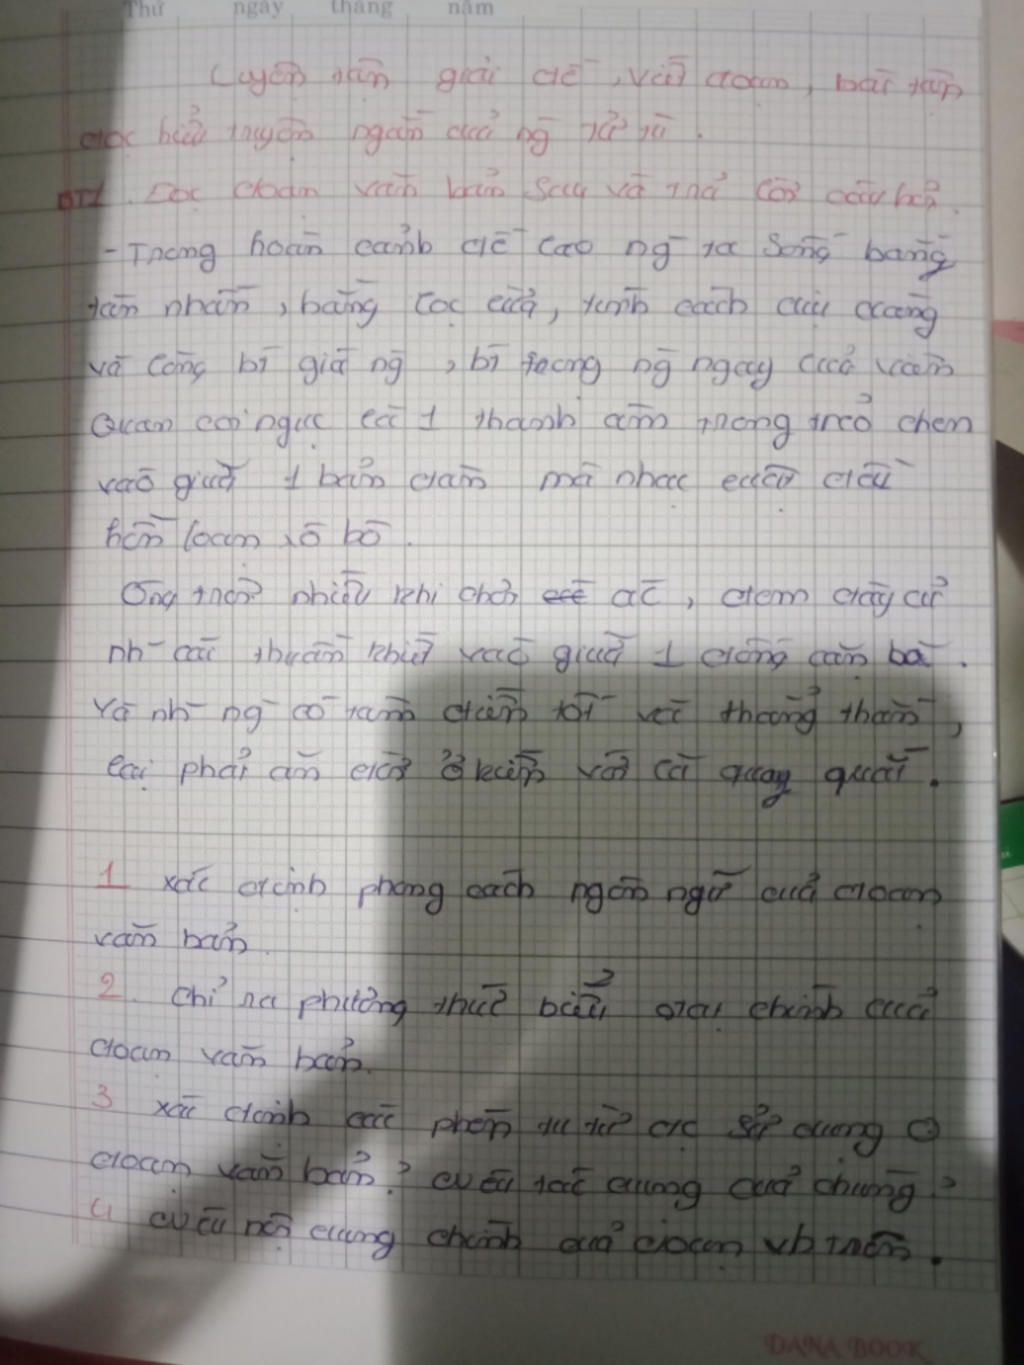 Thứ ngày tháng năm
Luyện tập giải đề, viết đoạn, bài tập
đọc hiểu truyện ngắn của ng tử tù.
BT1. Đọc đoạn văn bản sau và trả lời câu hỏi.
- Trong hoàn cảnh đề lao ng ta sống bằng
tàn nhẫn, bằng lọc lừa, tính cách dịu dàng
và lòng bĩ giá ng, bĩ trong ng ngay của viên
quan coi ngục là 1 thanh âm trong trẻo chen
vào giữa 1 bản đàn mà nhạc luật đều
hỗn loạn xô bồ.
Ông trời nhiều khi chơi ác, đem đày ải
nh cái thuần khiết vào giữa 1 đống cặn bã.
Và nh ng có tâm điền tốt và thẳng thắn,
lại phải ăn đời ở kiếp với lũ quay quắt.
1 xác định phong cách ngôn ngữ của đoạn
văn bản.
2. Chỉ ra phương thức biểu đạt chính của
đoạn văn bản.
3 xác định các phép tu từ đc sử dụng ở
đoạn văn bản? nêu tác dụng của chúng?
4 nêu nội dung chính của đoạn vb trên.
DANA BOOK